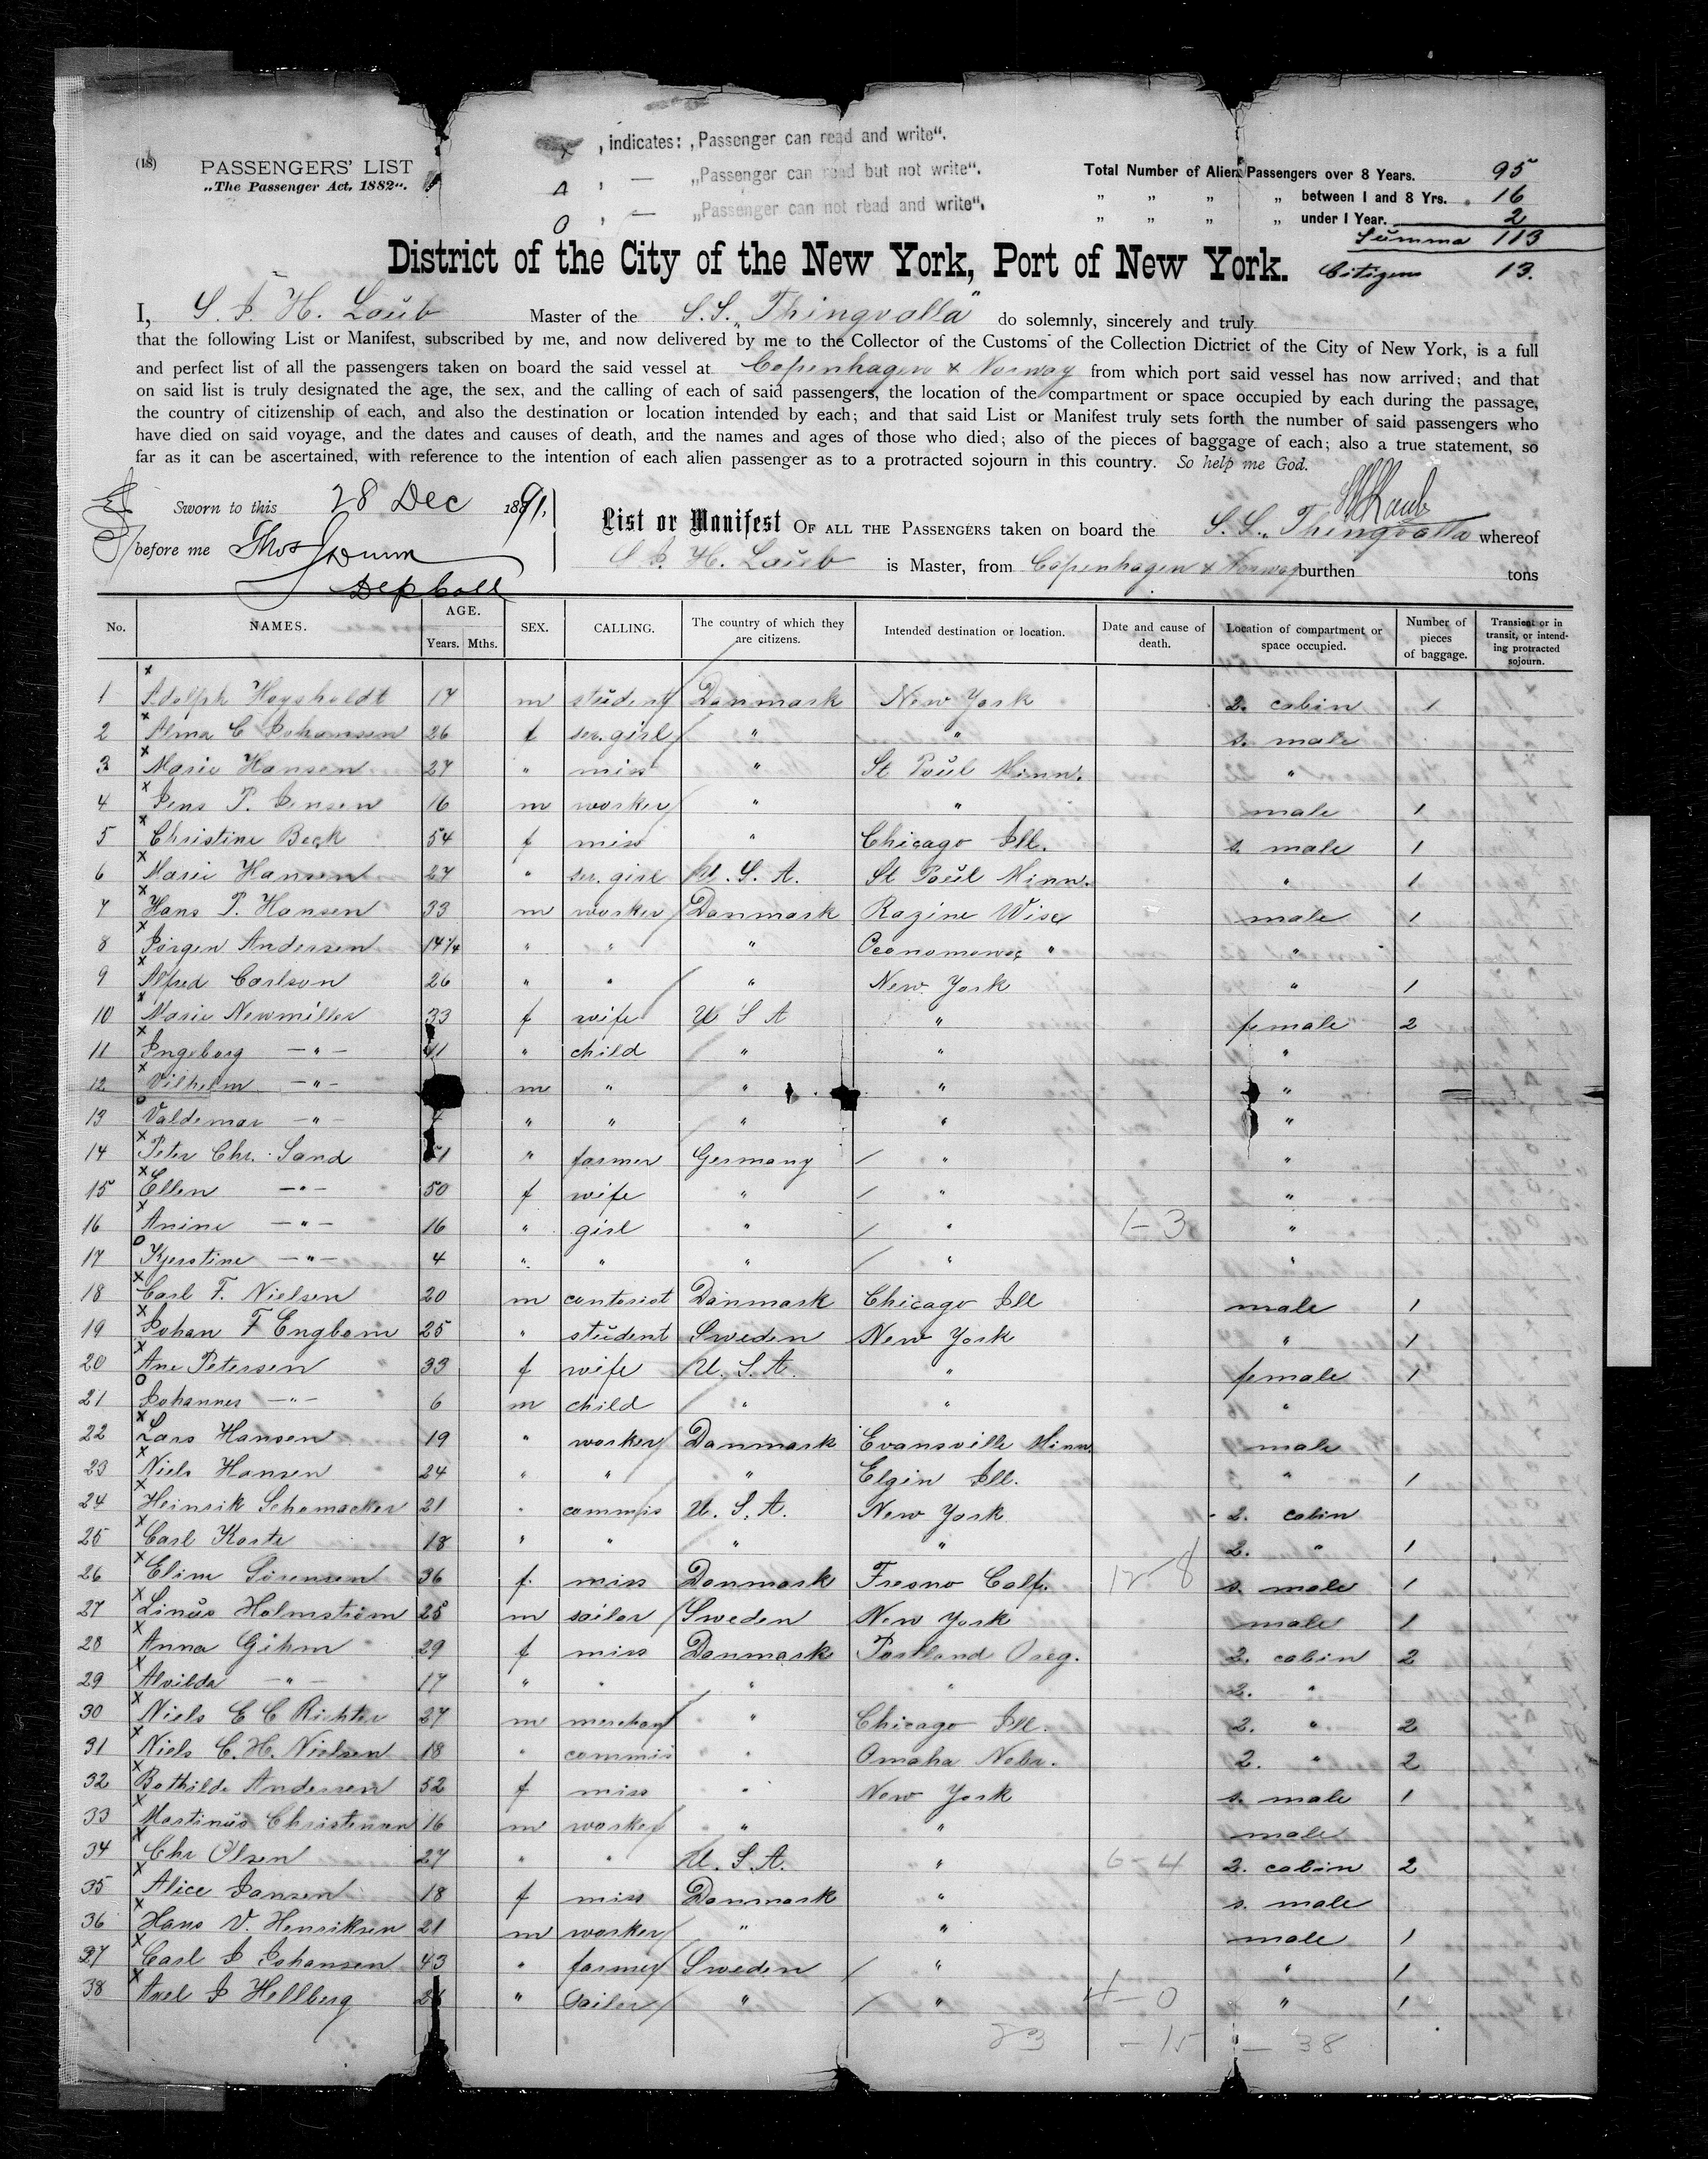 (18)
PASSENGERS' LIST
„The Passenger Act, 1882“.
x , indicates: „Passenger can read and write“.
Δ , — „Passenger can read but not write“.
O , — „Passenger can not read and write“.
Total Number of Alien Passengers over 8 Years. 95
„ „ „ „ between 1 and 8 Yrs. 16
„ „ „ „ under 1 Year. 2
Summa 113
Citizens 13.
District of the City of the New York, Port of New York.
I, S. J. H. Laub Master of the S.S. „Thingvalla“ do solemnly, sincerely and truly
that the following List or Manifest, subscribed by me, and now delivered by me to the Collector of the Customs of the Collection Dictrict of the City of New York, is a full
and perfect list of all the passengers taken on board the said vessel at Copenhagen & Norway from which port said vessel has now arrived; and that
on said list is truly designated the age, the sex, and the calling of each of said passengers, the location of the compartment or space occupied by each during the passage,
the country of citizenship of each, and also the destination or location intended by each; and that said List or Manifest truly sets forth the number of said passengers who
have died on said voyage, and the dates and causes of death, and the names and ages of those who died; also of the pieces of baggage of each; also a true statement, so
far as it can be ascertained, with reference to the intention of each alien passenger as to a protracted sojourn in this country. So help me God.
Sworn to this 28 Dec 1891,
before me Thos J Dunn
Dep Coll
List or Manifest OF ALL THE PASSENGERS taken on board the S.S. „Thingvalla whereof
S. J. H. Laub is Master, from Copenhagen & Norway burthen tons
No. NAMES. AGE. Years. Mths. SEX. CALLING. The country of which they are citizens. Intended destination or location. Date and cause of death. Location of compartment or space occupied. Number of pieces of baggage. Transient or in transit, or intending protracted sojourn.
1 x Adolph Hoysholdt 17 m student Danmark New York 2. cabin 1
2 x Alma C Johansen 26 f ser. girl " " s. male
3 x Marie Hansen 27 " miss " St Paul Minn. "
4 x Jens P. Jensen 16 m worker " " male 1
5 x Christine Beck 54 f miss " Chicago Ill. s. male 1
6 x Marie Hansen 27 " ser. girl U. S. A. St Paul Minn. " 1
7 x Hans P. Hansen 33 m worker Danmark Razine Wisc male 1
8 x Jörgen Andersen 14 1/4 " " " Oconomowoc " "
9 x Alfred Carlson 26 " " " New York " 1
10 x Marie Newmiller 33 f wife U S A " female 2
11 x Ingeborg —"— 11 " child " " "
12 x Vilhelm —"— m " " " "
13 o Valdemar —"— " " " " "
14 x Peter Chr. Sand 51 " farmer Germany " "
15 x Ellen —"— 50 f wife " " "
16 x Anine —"— 16 " girl " " 1-3 "
17 o Kjerstine —"— 4 " " " " "
18 x Carl F. Nielsen 20 m contorist Danmark Chicago Ill male 1
19 x Johan F Engbom 25 " student Sweden New York " 1
20 x Ane Petersen 33 f wife U. S. A. " female 1
21 o Johannes —"— 6 m child " " "
22 x Lars Hansen 19 " worker Danmark Evansville Minn. male
23 x Niels Hansen 24 " " " Elgin Ill. " 1
24 x Heinrik Schomacker 21 " commis U. S. A. New York 2. cabin
25 x Carl Korte 18 " " " " 2. " 1
26 x Eline Sörensen 36 f. miss Danmark Fresno Calf. 12-8 s. male 1
27 x Linus Holmström 25 m sailor Sweden New York male 1
28 x Anna Gihm 29 f miss Danmark Portland Oreg. 2. cabin 2
29 x Alvilda —"— 17 " " " " 2. "
30 x Niels E C Richter 27 m merchant " Chicago Ill. 2. " 2
31 x Niels C. H. Nielsen 18 " commis " Omaha Nebr. 2. " 2
32 x Bothilde Andersen 52 f miss " New York s. male 1
33 x Martinus Christensen 16 m worker " " male
34 x Chr Olsen 27 " " U. S. A. " 6-4 2. cabin 2
35 x Alice Jansen 18 f miss Danmark " s. male
36 x Hans V. Henriksen 21 m worker " " male 1
37 x Carl J Johansen 43 " farmer Sweden " " 1
38 x Axel J Hellberg " Sailor " " 4-0 " 1
23 -15 — 38